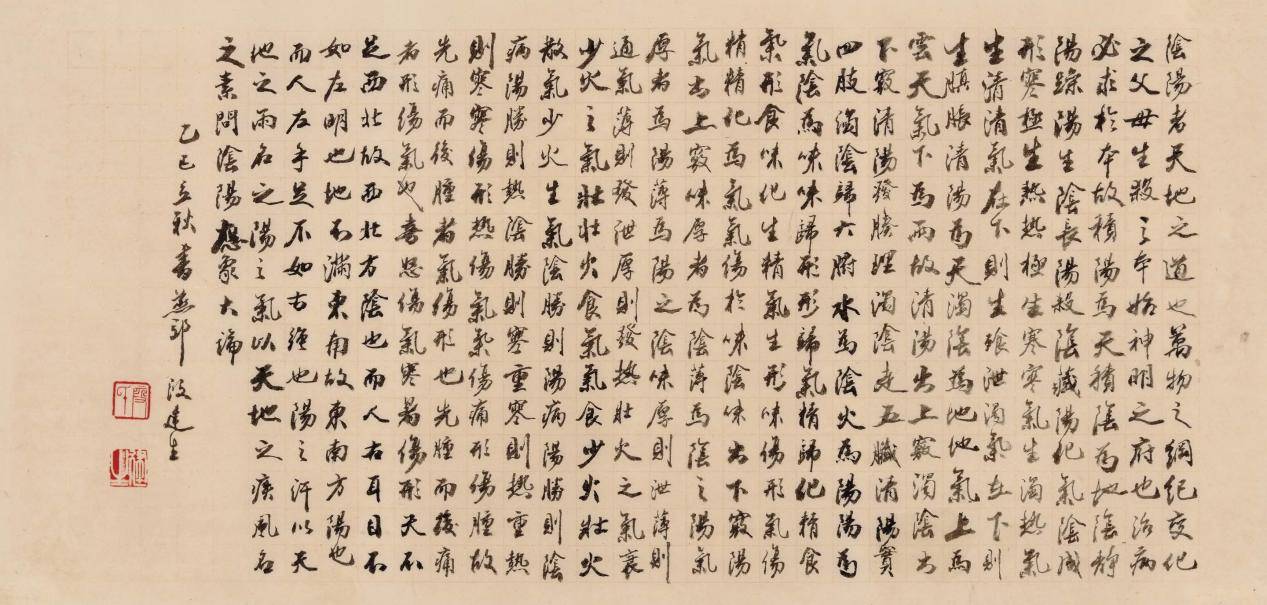 陰陽者天地之道也萬物之綱紀变化
之父母生殺之本始神明之府也治病
必求於本故積陽為天積陰為地陰静
陽躁陽生陰長陽殺陰藏陽化氣陰成
形寒極生熱熱極生寒寒氣生濁熱氣
生清清氣在下則生飱泄濁氣在下則
生䐜脹清陽為天濁陰為地地氣上為
雲天氣下為雨故清陽出上竅濁陰出
下竅清陽發腠理濁陰走五臟清陽實
四肢濁陰歸六腑水為陰火為陽陽為
氣陰為味味歸形形歸氣精歸化精食
氣形食味化生精氣生形味傷形氣傷
精精化為氣氣傷於味陰味出下竅陽
氣出上竅味厚者為陰薄為陰之陽氣
厚者為陽薄為陽之陰味厚則泄薄則
通氣薄則發泄厚則發熱壯火之氣衰
少火之氣壯壯火食氣氣食少火壯火
散氣少火生氣陰勝則陽病陽勝則陰
病陽勝則熱陰勝則寒重寒則熱重熱
則寒寒傷形熱傷氣氣傷痛形傷腫故
先痛而後腫者氣傷形也先腫而後痛
者形傷氣也喜怒傷氣寒暑傷形天不
足西北故西北方陰也而人右耳目不
如左明也地不滿東南故東南方陽也
而人左手足不如右強也陽之汗以天
地之雨名之陽之氣以天地之疾風名
之素問陰陽應象大論
乙巳立秋書燕郊 段建生